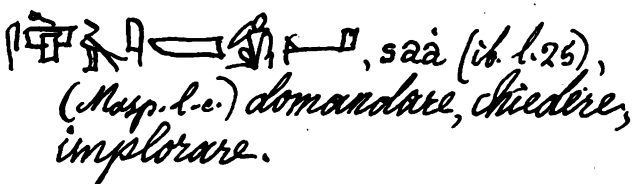 , saà (ib. l. 25),
(Masp. l.c.) domandare, chiedere,
implorare.